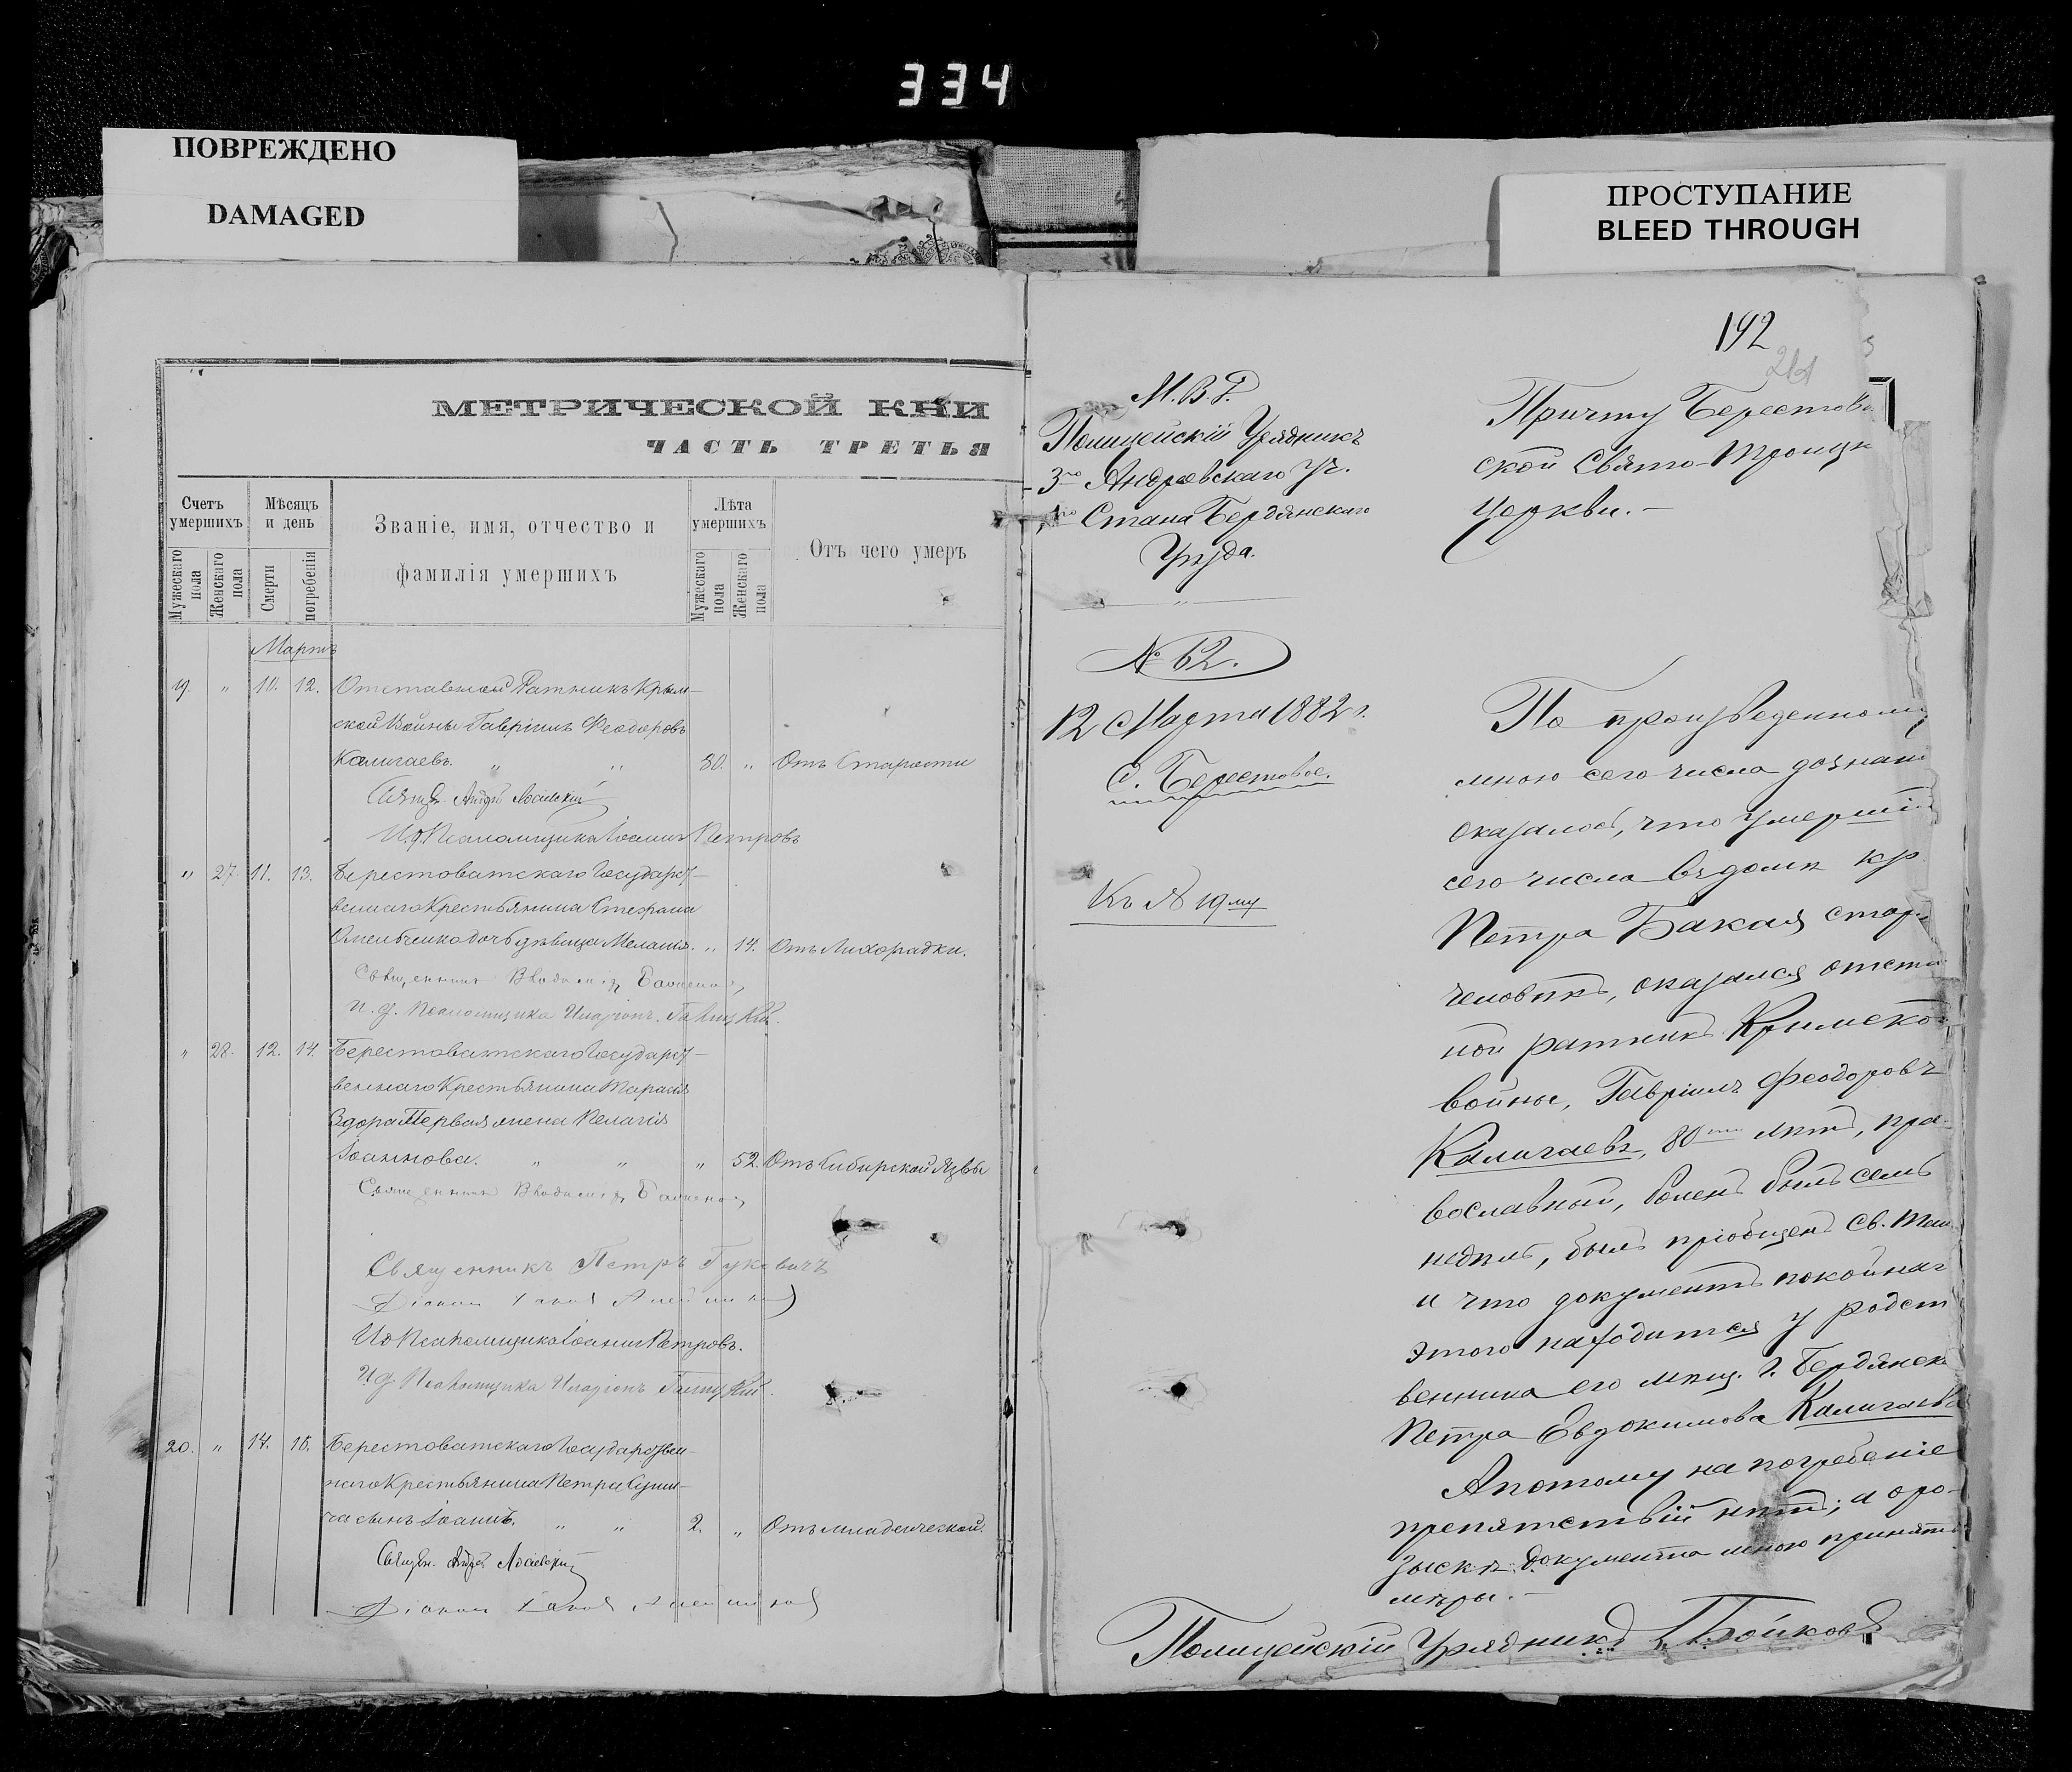 334
ПОВРЕЖДЕНО
DAMAGED
ПРОСТУПАНИЕ
BLEED THROUGH
МЕТРИЧЕСКОЙ КНИ
ЧАСТЬ ТРЕТЬЯ
Счетъ умершихъ
Мужескаго пола
Женскаго пола
Мѣсяцъ и день
Смерти
погребенія
Званіе, имя, отчество и
фамилія умершихъ
Лѣта умершихъ
Мужескаго пола
Женскаго пола
Отъ чего умеръ
Мартъ
19. " 10. 12. Отставной Ратникъ Крым-
ской Войны Гавріилъ Феодоровъ
Каличаевъ. " " 80. " Отъ Старости
Священ. Андрей
И. д. Псаломщика Іоаннъ Петровъ
" 27. 11. 13. Берестоватскаго Государст-
веннаго Крестьянина Стефана
Омельченко дочь дѣвица Меланія. " 14. Отъ Лихорадки.
Священникъ Владимір
И. д. Псаломщика Иларіонъ
" 28. 12. 14. Берестоватскаго Государст-
веннаго Крестьянина Тарасія
Здора Первая жена Пелагія
Іоаннова. " " " 52. Отъ Сибирской Язвы
Священникъ Владимір
Священникъ Петръ Гукевичъ
Діаконъ
И д Псаломщика Іоаннъ Петровъ.
И. д. Псаломщика Иларіонъ
20. " 14. 15. Берестоватскаго Государствен-
наго Крестьянина Петра
сынъ Іоаннъ. " " 2. " Отъ младенческой.
Священ. Андрей
Діаконъ
192
М. В. Д.
Полицейскій Урядникъ
3го Андреевскаго Уч.
1го Стана Бердянскаго
Уѣзда.
№ 62.
12 Марта 1882 г.
С. Берестовое.
Къ № 19му
Причту Берестов
ской Свято-Троицк
Церкви. –
По произведенному
мною сего числа дознан
оказалось, что умершій
сего числа въ домѣ кр.
Петра Бакая стар
человѣкъ, оказался отстав
ной ратникъ Крымской
войны, Гавріилъ Феодоровъ
Каличаевъ, 80ти лѣтъ, пра-
вославный, боленъ былъ семь
недѣль, былъ пріобщенъ Св. Таин.
и что документъ покойнаг
этого находится у родст
венника его мѣщ. г. Бердянска
Петра Евдокимова Каличаева
А потому на погребеніе
препятствій нѣтъ; а о ро-
зыскѣ документа мною приняты
мѣры. –
Полицейскій Урядникъ Бойковъ